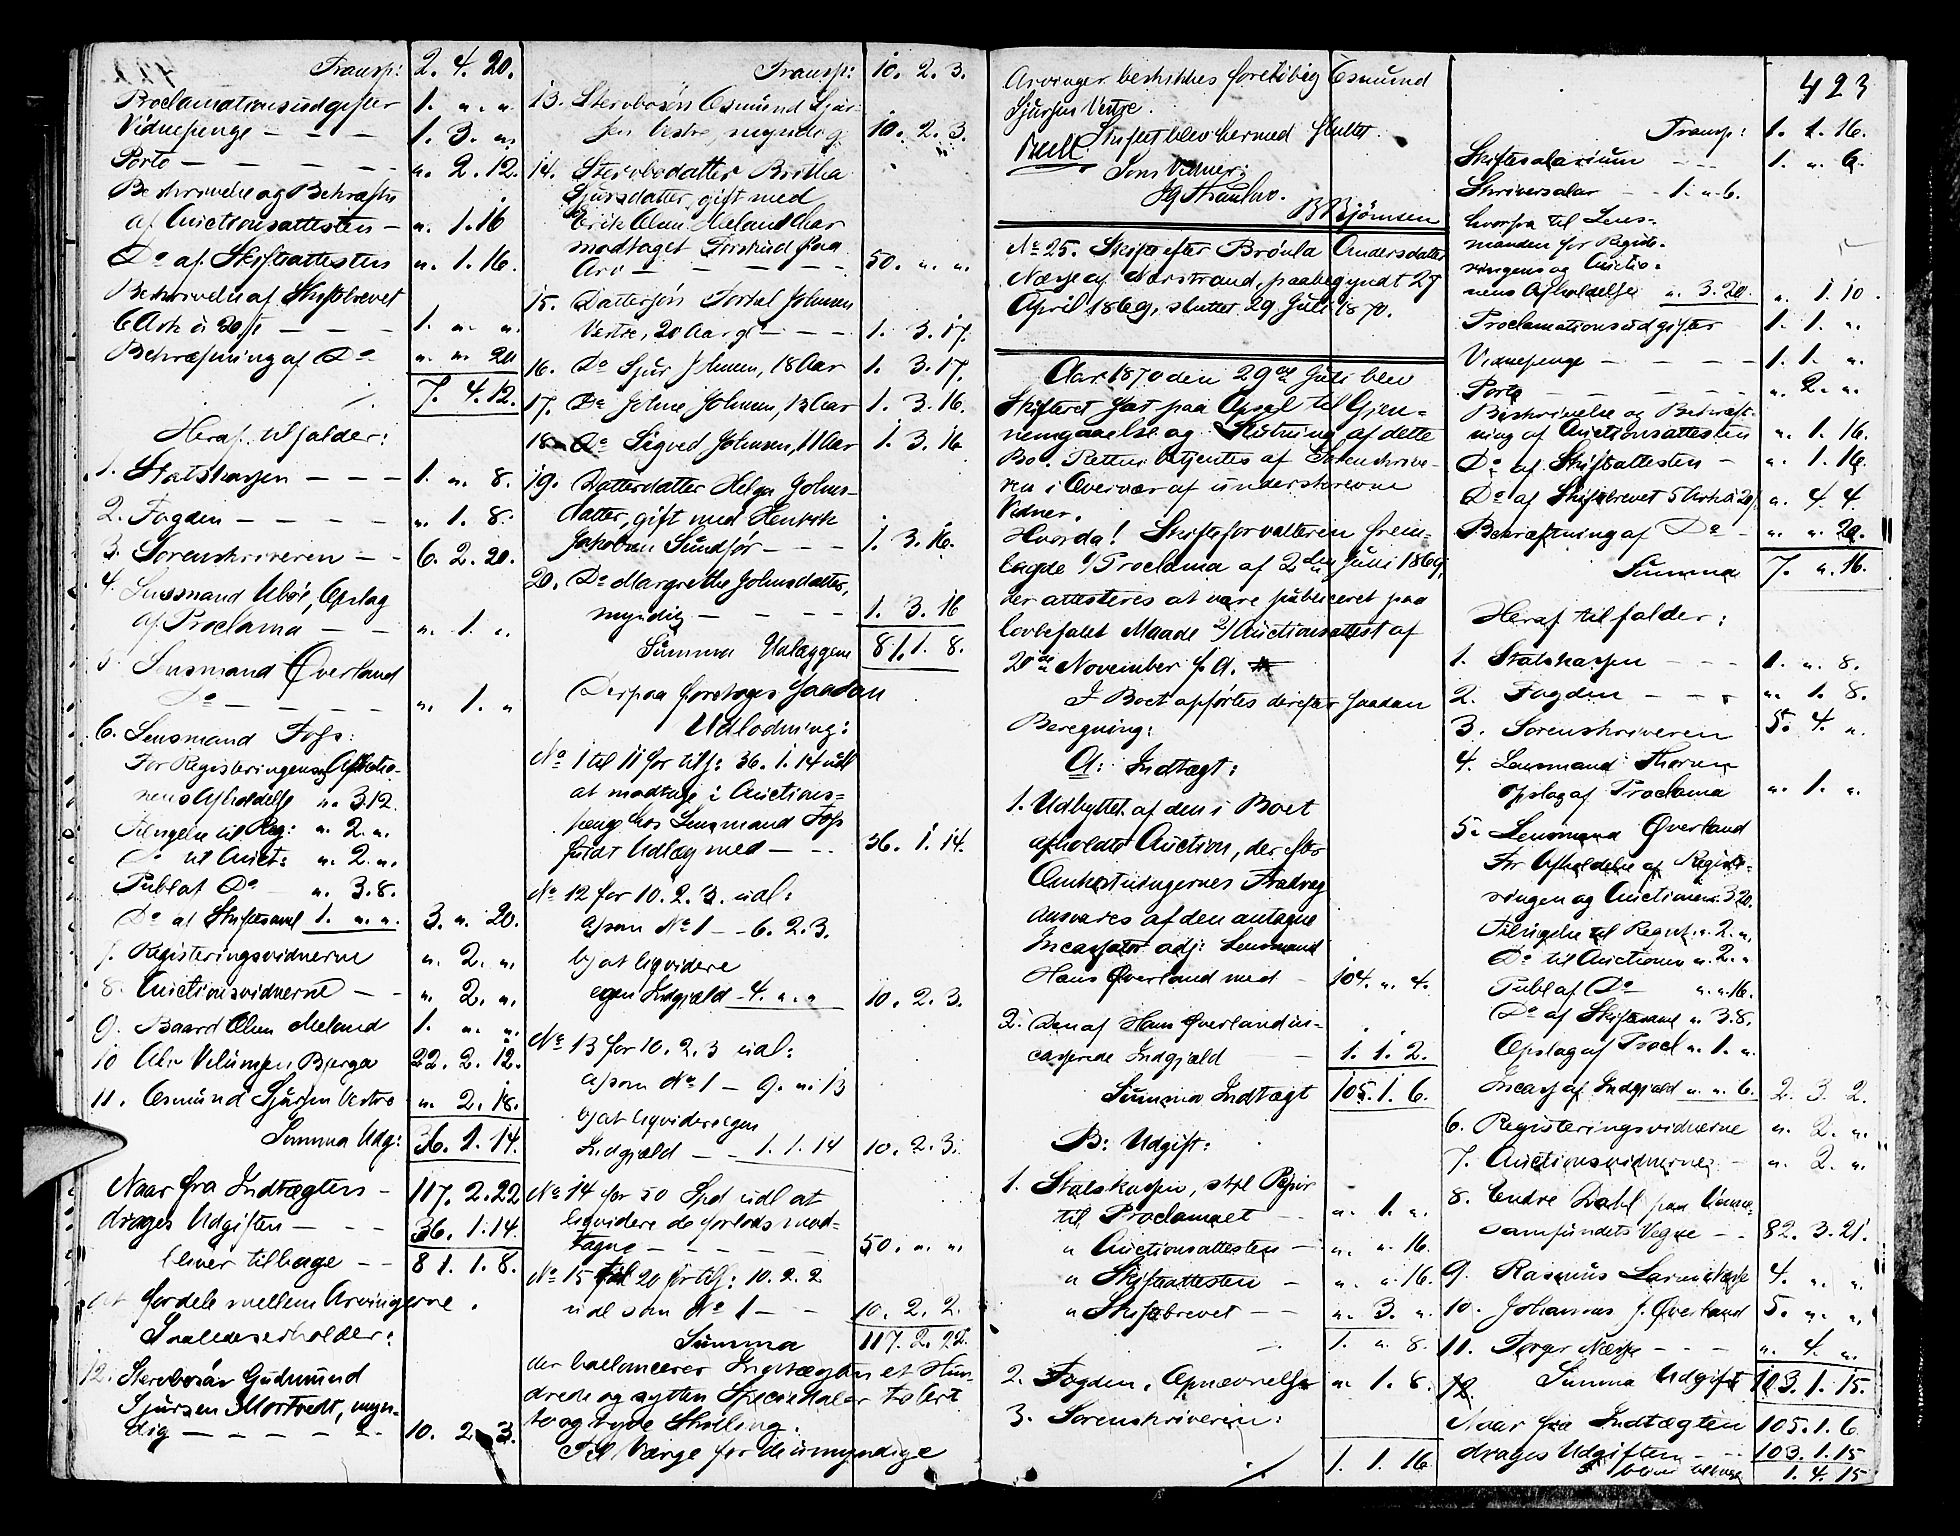 Transp: 2. 4. 20.
Proclamationsudgifter 1. „. „.
Vidnepenge — — — 1. 3. „.
Porto — — — — „. 2. 12.
Beskrivelse og Bekræftn
af Auctionsattesten — „. 1. 16
Do af Skifteattesten „. 1. 16.
Beskrivelse af Skiftebrevet
6 Ark à 20 s — — — 1. „. „.
Bekræftning af Do „. „. 20
7. 4. 12.
Heraf tilfalder:
1. Statskassen — — — 1. „. 8.
2. Fogden — — — — „. 1. 8.
3. Sorenskriveren — — 6. 2. 20.
4. Lensmand Ubøe, Opslag
af Proclama — — „. 1. „.
5. Lensmand Øverland
Do — — — — „. 1. „
6. Lensmand Foss:
For Registeringens og Auctio-
nens Afholdelse „. 3.12.
Tilsigelse til Reg: „. 2. „.
Do til Auct: „. 2. „.
Publ af Do — „. 3. 8.
Do af Skiftesaml 1. „. „. 3. „. 20.
7. Registeringsvidnerne „. 2. „.
8. Auctionsvidnerne — — „. 2. „.
9. Baard Olsen Meland 1. „. „.
10 Ahv Velumsen Bjerga 22. 2. 12.
11. Osmund Sjursen Vestre „. 2. 18.
Summa Udg: 36. 1. 14.
Naar fra Indtægten — 117. 2. 22
drages Udgiften — — — 36. 1. 14.
bliver tilbage — — 81. 1. 8.
at fordele mellem Arvingerne.
Saaledes erholder:
12. Stervbosøn Gudmund
Sjursen Mortvedt, myn-
dig — — — — — — 10. 2. 3.
Transp: 10. 2. 3.
13. Stervbosøn Osmund Sjur-
sen Vestre, myndig 10. 2. 3.
14. Stervbodatter Britha
Sjursdatter, gift med
Erik Olsen Meland har
modtaget Forskud paa
Arv — — — — — 50. „. „.
15. Dattersøn Tortal Johnsen
Vestre, 20 Aar gl — — — 1. 3. 17.
16. Do Sjur Johnsen, 18 Aar 1. 3. 17.
17. Do Johne Johnsen, 13 Aar 1. 3. 16.
18. Do Sigved Johnsen, 11 Aar 1. 3. 16
19. Datterdatter Helga Johns-
datter, gift med Henrik
Jakobsen Sundfør — — — 1. 3. 16.
20. Do Margrethe Johnsdatter,
myndig — — — — 1. 3. 16
Summa Udlæggene 81. 1. 8.
Derpaa foretoges saadan
Udlodning:
No 1 til 11 for tils: 36. 1. 14 udl
at modtage i Auctions-
penge hos Lensmand Foss
fuldt Udlæg med — — 36. 1. 14.
No 12 for 10. 2. 3. udl:
a) som No 1 — — 6. 2. 3.
b) at liqvidere
egen Indgjæld — 4. „. „ 10. 2. 3.
No 13 for 10. 2. 3 udl:
a) som No 1 — 9. „. 13
b) at liqvidere egen
Indgjæld — — 1. 1. 14 10. 2. 3.
No 14 for 50 Spd udl at
liqvidere de forlods mod-
tagne — — — — — 50. „. „.
No 15 til 20 for tils: 10. 2. 2
udl som No 1 — — 10. 2. 2.
Summa 117. 2. 22.
der balancerer Indtægten et Hun-
drede og sytten Speciedaler to Ort
to og tyve Skilling.
Til Værge for de umyndige
Arvinger beskikkes foreløbig Osmund
Sjursen Vestre.
Skiftet blev hermed sluttet.
Som Vidner:
BBjörnsen
423
No 25. Skifte efter Brövla Andersdatter
Næsse af Narstrand, paabegyndt 27
April 1869, sluttet 29 Juli 1870.
Aar 1870 den 29de Juli blev
Skifteret sat paa Opsal til Gjen-
nemgaaelse og Slutning af dette
Bo. Retten betjentes af Sorenskrive-
ren i Overvær af underskrevne
Vidner.
Hvorda! Skifteforvalteren frem-
lagde 1/ Proclama af 2den Juni 1869,
der attesteres at være publiceret paa
lovbefalet Maade 2/ Auctionsattest af
20de November f. A.
I Boet opførtes derefter saadan
Beregning:
A: Indtægt:
1. Udbyttet af den i Boet
afholdte Auction, der efter
Omkostningernes Fradrag
ansvares af den antagne
Incassator adj: Lensmand
Hans Øverland med — 104. „. 4.
2. Den af Hans Øverland in-
casserede Indgjæld — 1. 1. 2.
Summa Indtægt 105. 1. 6.
B: Udgift:
1. Statskassen, stpl Papir
til Proclamaet — — „. 1. „.
„ Auctionsattesten — „. „. 16.
„ Skifteattesten — „. „. 16.
„ Skiftebrevet — — „. 3. „.
1. „. 8.
2. Fogden, Opnævnelse „. 1. 8.
3. Sorenskriveren:
1. 1. 16
Transp: 1. 1. 16.
Skiftesalarium — — 1. „. 6.
Skriversalar — — 1. „. 6.
hvorfra til Lens-
manden for Registe-
ringens og Auctio-
nens Afholdelse „. 3. 20. „. 1. 10.
Proclamationsudgifter 1. 1. „.
Vidnepenge — — — — 1. 1. „.
Porto — — — — „. 2. „.
Beskrivelse og Bekræft-
ning af Auctionsattesten „. 1. 16.
Do af Skifteattesten — „. 1. 16.
Do af Skiftebrevet 5 Ark à 20 s „. 4. 4.
Bekræftning af Do — „. „. 20.
Summa 7. „. 16.
Heraf tilfalder:
1. Statskassen — — — 1. „. 8.
2. Fogden — — — „. 1. 8.
3. Sorenskriveren 5. 4. „.
4. Lensmand Thorsen
Opslag af Proclama „. 1. „.
5. Lensmand Øverland
For Afholdelse af Registe-
ringen og Auctionen „. 3 20.
Tilsigelse til Registr. „. 2. „.
Do til Auctionen „. 2. „
Publ af Do „. „. 16.
Do af Skiftesaml „. 3. 8.
Opslag af Procl „. 1. „.
Incass af Indgjæld „. „. 6. 2. 3. 2.
6. Registeringsvidnerne „. 2. „.
7. Auctionsvidnerne — „. 2. „.
8. Endre Dahl paa Venne-
samfundets Vegne — — 82. 3. 21.
9. Rasmus Larsen Næsse 4. „. „.
10. Johannes J. Øverland 5. „. „.
11. Torger Næsse — — — „. 4. „.
12. Summa Udgift 103. 1. 15.
Naar fra Indtægten 105. 1. 6.
drages Udgiften — — 103. 1. 15
bliver tilbage 1. 4. 15